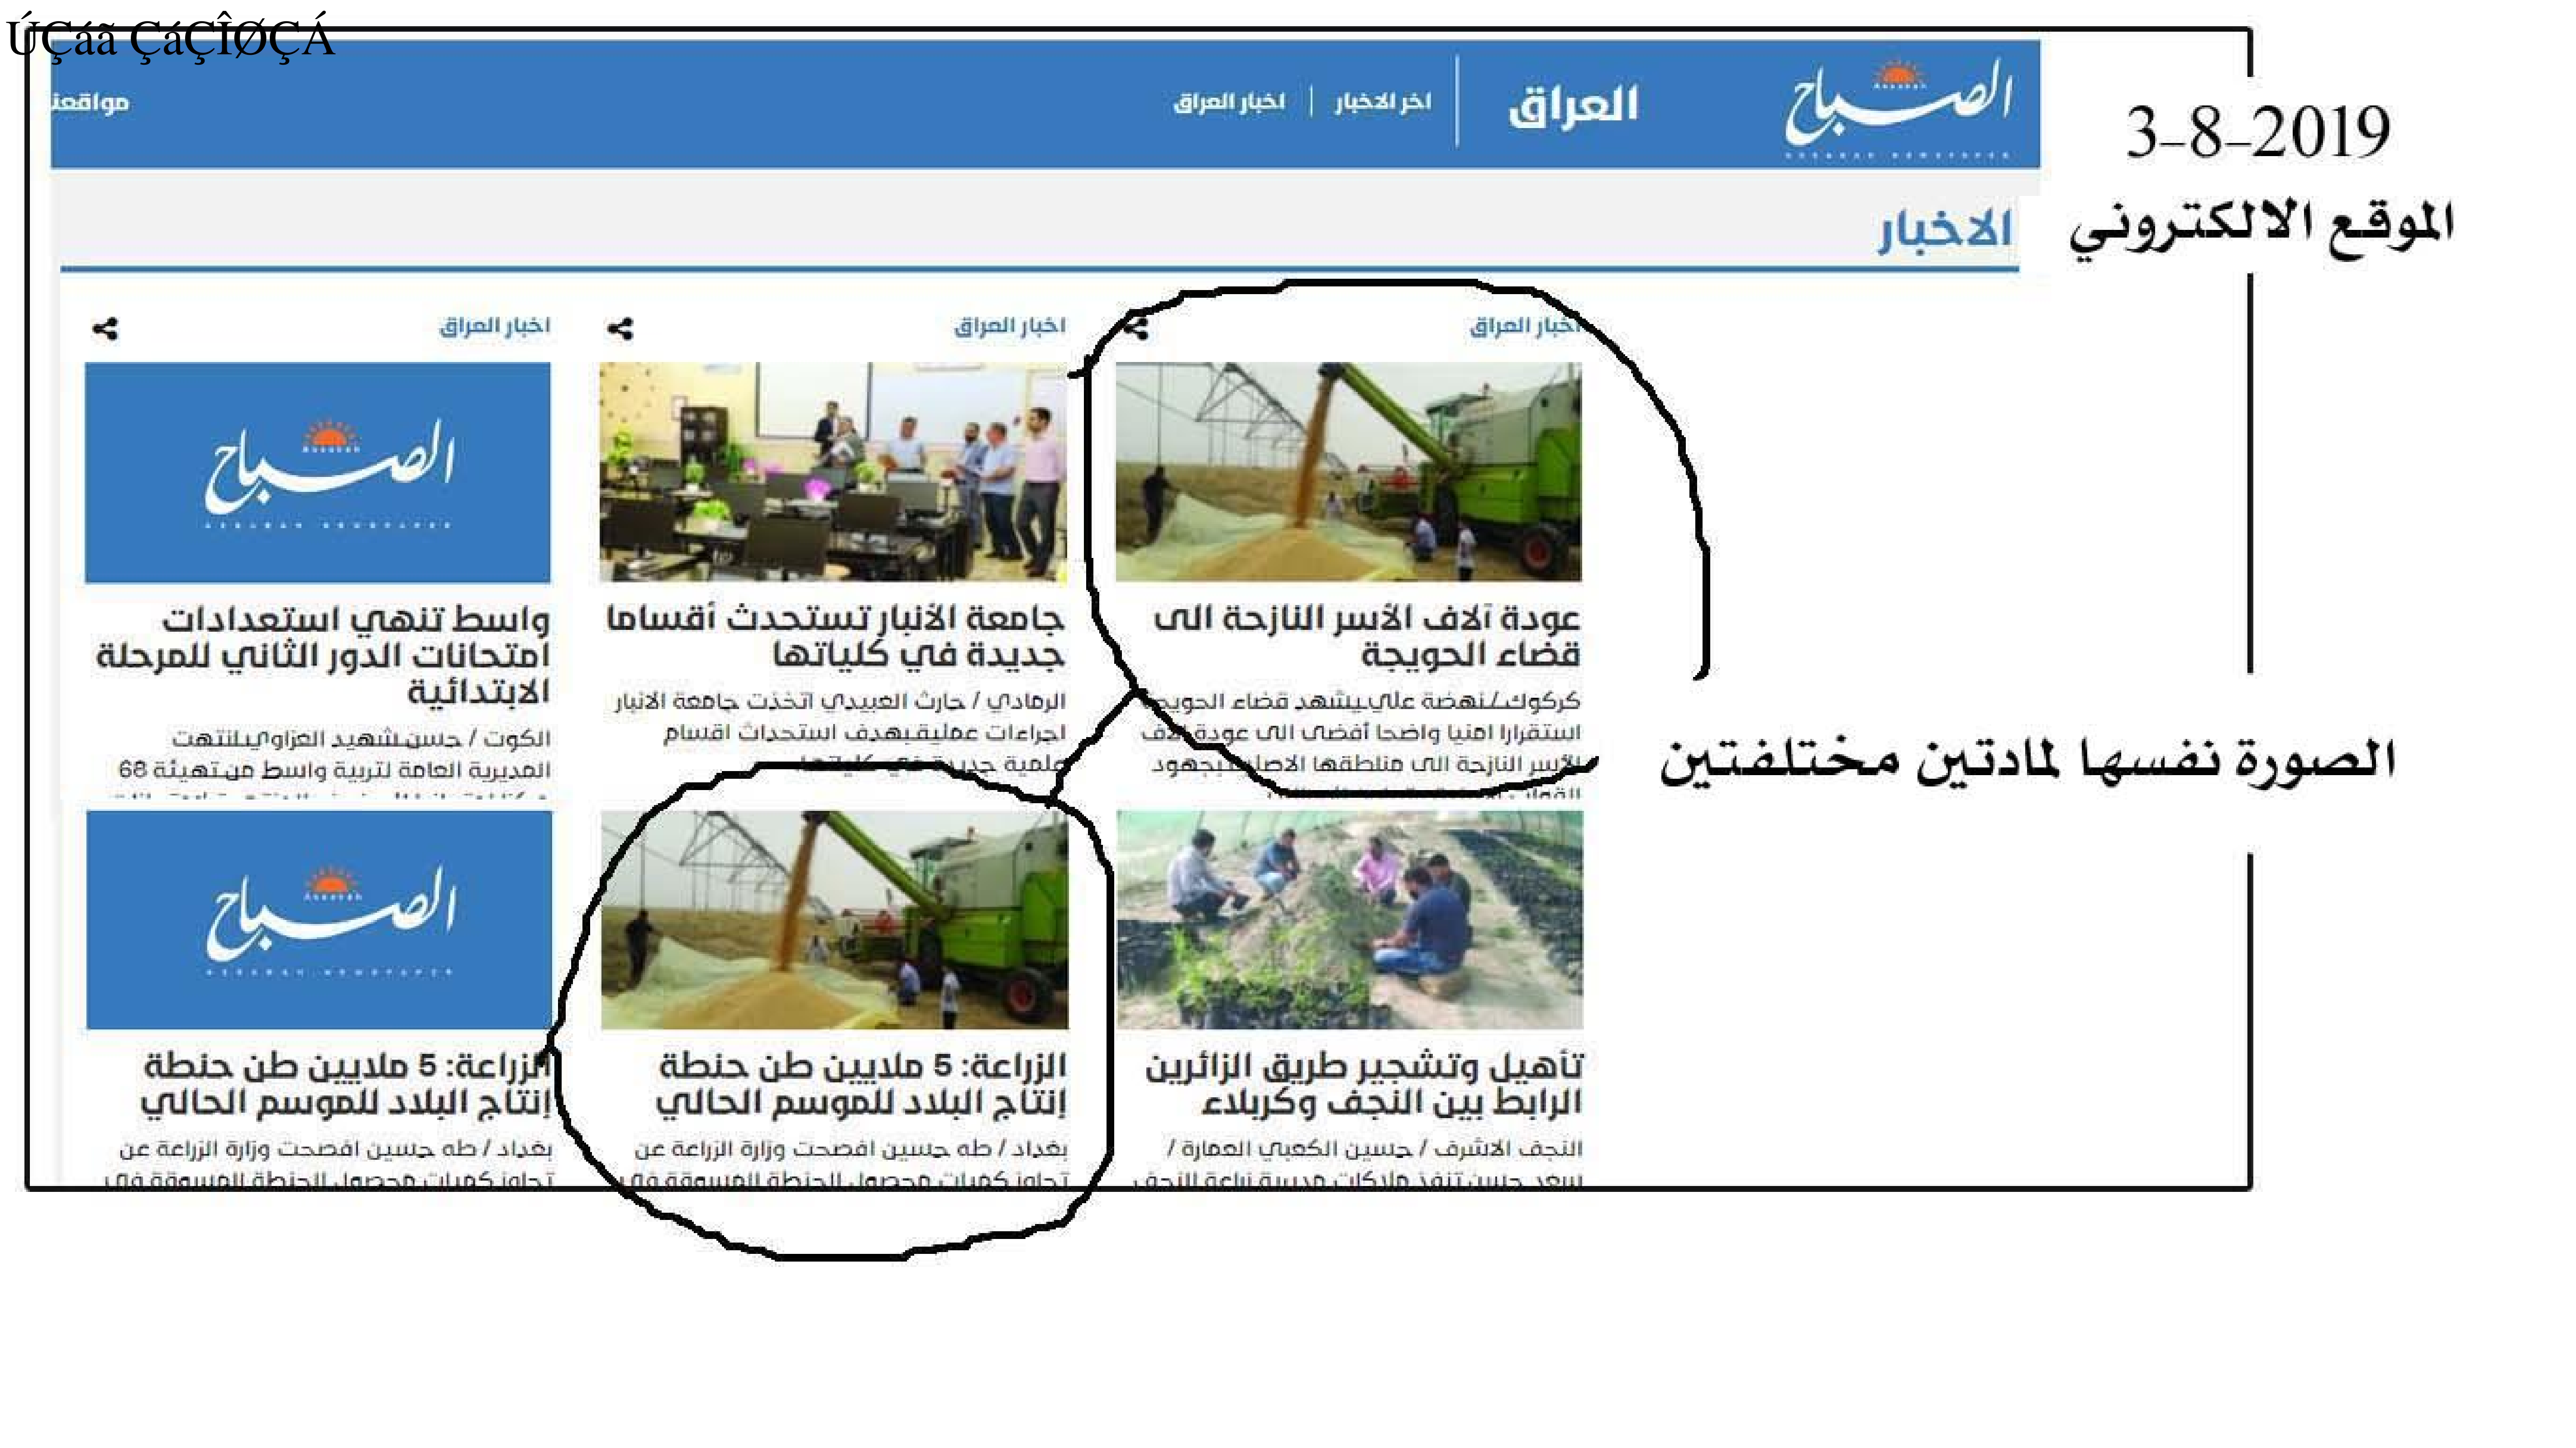 ÚÇáã ÇáÇÎØÇÁ
الصباح
العراق
اخر الاخبار
اخبار العراق
مواقعنا
3-8-2019
الموقع الالكتروني
الاخبار
اخبار العراق
عودة آلاف الأسر النازحة الى
قضاء الحويجة
كركوك / نهضة علي يشهد قضاء الحويجة
استقرارا امنيا واضحا أفضى الى عودة الاف
الأسر النازحة الى مناطقها الاصلية بجهود
اخبار العراق
جامعة الأنبار تستحدث أقساما
جديدة في كلياتها
الرمادي / حارث العبيدي اتخذت جامعة الانبار
اجراءات عملية بهدف استحداث اقسام
علمية جديدة في كلياتها
اخبار العراق
الصباح
ASSABAH NEWSPAPER
واسط تنهي استعدادات
امتحانات الدور الثاني للمرحلة
الابتدائية
الكوت / حسن شهيد العزاوي انتهت
المديرية العامة لتربية واسط من تهيئة 68
الصورة نفسها لمادتين مختلفتين
تأهيل وتشجير طريق الزائرين
الرابط بين النجف وكربلاء
النجف الاشرف / حسين الكعبي العمارة /
سعد حسن تنفذ ملاكات مديرية زراعة النجف
الزراعة: 5 ملايين طن حنطة
إنتاج البلاد للموسم الحالي
بغداد / طه حسين افصحت وزارة الزراعة عن
تجاوز كميات محصول الحنطة المسوقة في
الصباح
ASSABAH NEWSPAPER
الزراعة: 5 ملايين طن حنطة
إنتاج البلاد للموسم الحالي
بغداد / طه حسين افصحت وزارة الزراعة عن
تجاوز كميات محصول الحنطة المسوقة في